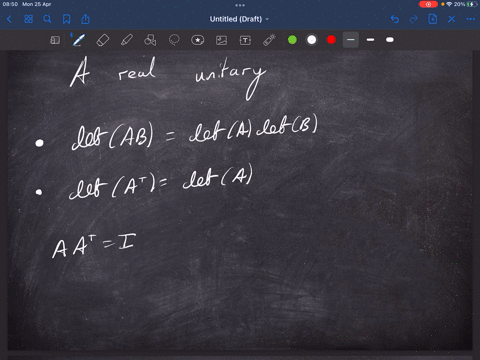 08:50 Mon 25 Apr
20%
Untitled (Draft)
A real unitary
• det(AB) = det(A) det(B)
• det(Aᵀ) = det(A)
A Aᵀ = I